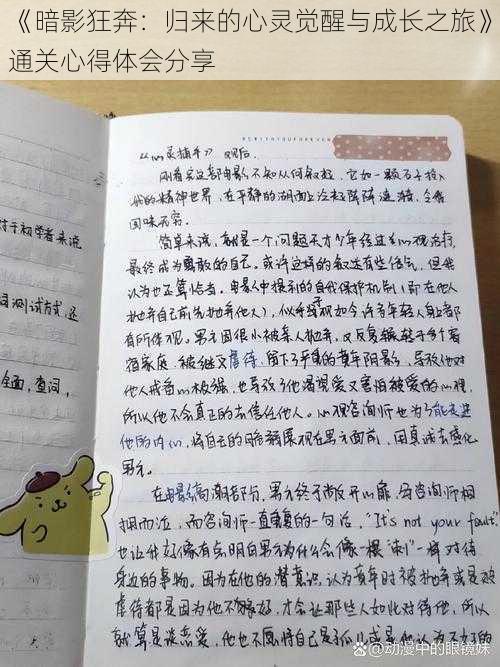 《暗影狂奔：归来的心灵觉醒与成长之旅》
通关心得体会分享
《心灵捕手》观后.
刚看完这部电影不知从何叙起,它如一颗石子投入
我的精神世界,在平静的湖面上泛起阵阵涟漪,令我
回味无穷.
简单来说,就是一个问题天才少年经过心理治疗,
最终成为勇敢的自己。或许这样的叙述有些俗气,但我
认为也还算恰当。电影中提到的自我保护机制(即在他人
抛弃自己前先抛弃他人),似乎在现如今许多年轻人身上都
有所体现。男主因很小被亲人抛弃,又反复辗转于多个寄
宿家庭,被继父虐待,留下了严重的童年阴影,导致他对
他人戒备心极强,也导致了他渴望爱又害怕被爱的心理,
所以他不会真正的去信任他人。心理咨询师也为了能走进
他的内心,将自己的脆弱展现在男主面前,用真诚去感化
男主。
在电影高潮部分,男主终于敞开心扉,与咨询师相
拥而泣,而咨询师一直重复的一句话,"It's not your fault."
也让我好像有点明白男主为什么会像一根"刺"一样对待
身边的事物。因为在他的潜意识,认为童年时被抛弃或是被
虐待都是因为他不够好,才会让那些人如此对待他,所以
就算是谈恋爱,他也不愿将自己是孤儿或是他认为不好的
对于初学者来说
测试方式,还
全面,查词,
@动漫中的眼镜妹